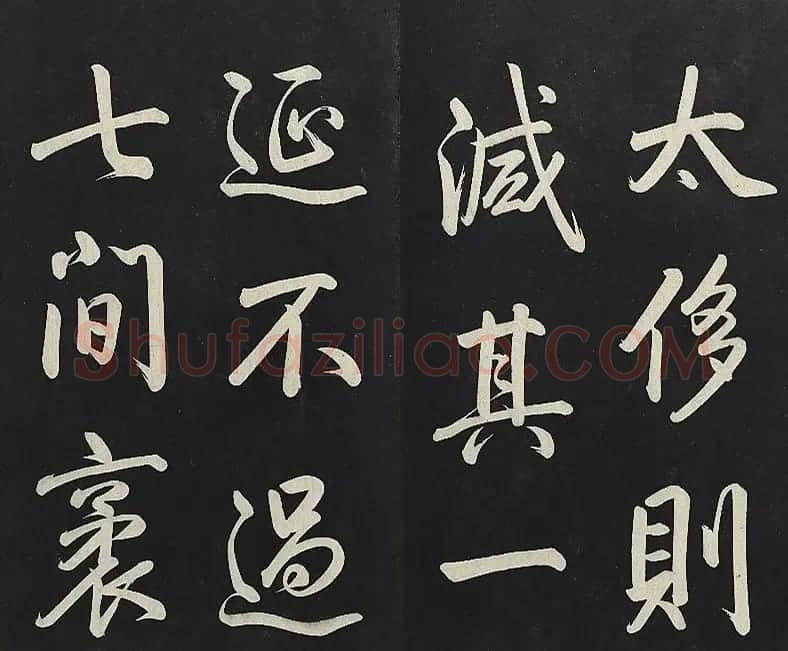 太侈則
減其一
延不過
七間袤
Shufaziliao.COM